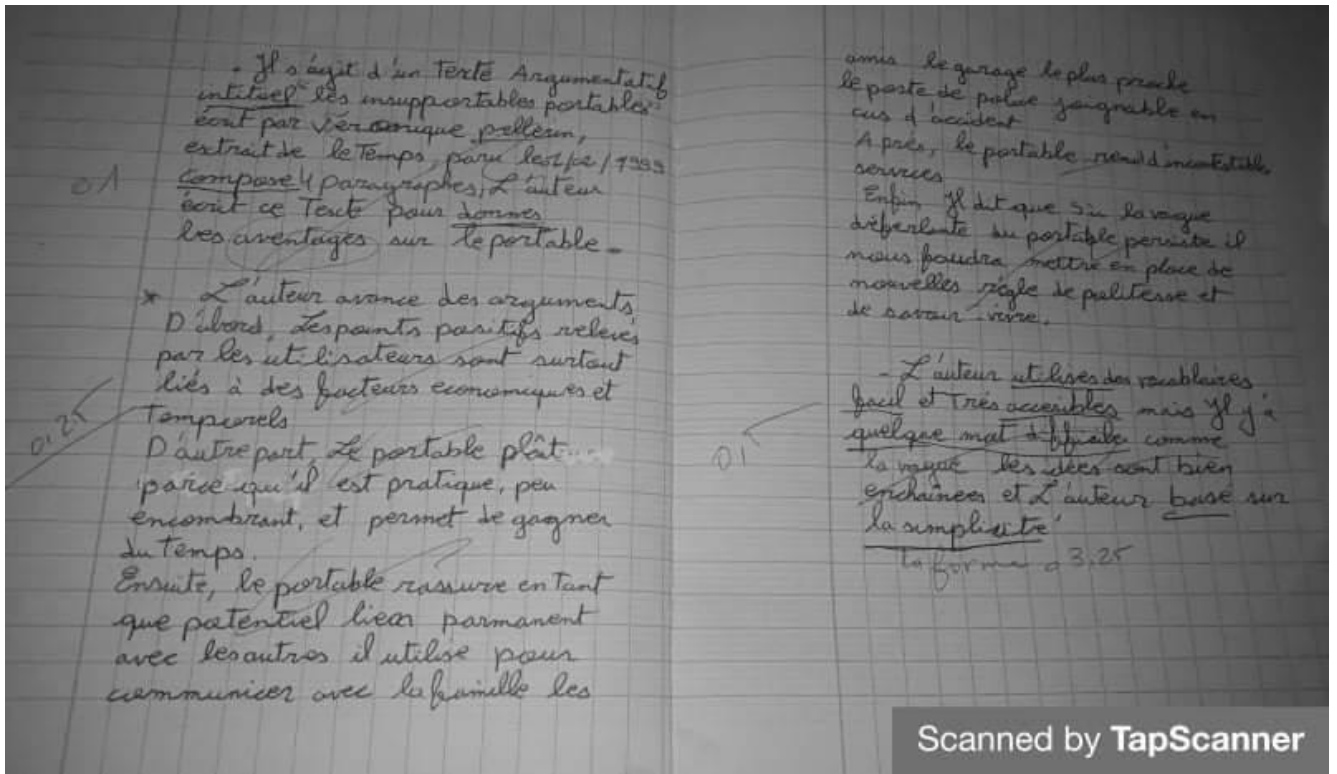 - Il s'agit d'un Texte Argumentatif
intituel "les insupportables portables"
écrit par Véronique pellerin,
extrait de le Temps, paru le 1999
01
compose 4 paragraphes, L'auteur
écrit ce Texte pour donner
les aventages sur le portable -
* L'auteur avance des arguments,
D'abord, Les points positifs relevés
par les utilisateurs sont surtout
liés à des facteurs economiques et
Temporels
D'autre part, Le portable plât
parce qu'il est pratique, peu
encombrant, et permet de gagner
du Temps.
Ensuite, le portable rassure en Tant
que potentiel lien parmanent
avec les autres il utilise pour
communicer avec la famille les
amis le garage le plus proche
le poste de police joignable en
cas d'accident
Après, le portable rend d'incontestables
services
Enfin Il dit que si la vague
déferlante du portable persiste il
nous faudra mettre en place de
nouvelles règle de politesse et
de savoir-vivre.
- L'auteur utilises des vocablaires
facil et Très accesibles mais Il y'a
quelque mot difficile comme
la vague les idées sont bien
enchainées et L'auteur base sur
la simplicité
la forme 3,25
Scanned by TapScanner